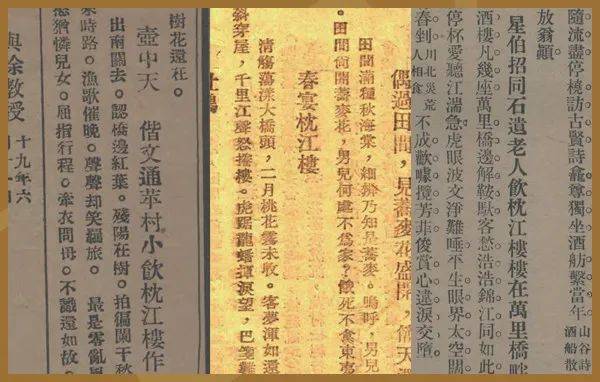 隨流盡停橈訪古賢詩龕尊獨坐酒舫繫當年 山谷詩 酒船散
放翁顛
星伯招同石遺老人飲枕江樓樓在萬里橋畔
酒樓凡幾座萬里橋邊解鞍馱客愁浩浩錦江同如此
停杯愛聽江湍急虎眼波文淨難唾平生眼界太空闊
春到 川北災荒 人相食 不成歡噱攬芳菲俊賞心違淚交墮
偶過田間,見蕎麥花盛開,借天
田間滿種秋海棠,細辨乃知是蕎麥。嗚呼,男兒
田間尙開蕎麥花,男兒何處不為家?餓死不食東夷
春宴枕江樓
清觴蕩漾大橋頭,二月桃花霧未收。客夢渾如還
斜穿屋,千里江聲怒撼樓。虎踞龍蟠 淚望,巴箋
杜鵑
樹花還在。
壺中天 偕文通苹村小飲枕江樓作
出南關去。認橋邊紅葉。殘陽在樹。拍徧闌干秋
來時路。漁歌催晚。聲聲却笑羈旅。 最是零亂風
怨猶憐兒女。屈指行程。牽衣問母。不識還如故。
與徐教授 十九年六